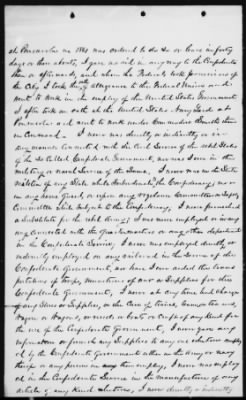 at Pensacola in 1862 was ordered to do so or leave in forty
days or thereabouts, I gave no aid in any way to the Confederates
then or afterwards, and when the Federals took possession of
the City I took the oath of allegiance to the Federal Union and
went to work in the employ of the United States Government
I often took an oath at the United States Navy Yard at
Pensacola and went to work under Commodore Smith then
in Command. I never was directly or indirectly or in
any manner connected with the Civil Service of the rebel States
of the so Called Confederate Government, nor was I ever in the
military or naval Service of the Same, I never was in the State
militia of any State while it was under the Confederacy; nor
in any home Guard, or upon any vigilance Committee or Safety
Committee while subject to the Confederacy; I never furnished
a Substitute for the rebel Army; I was never employed in or was
any connected with the Quartermasters or any other department
in the Confederate Service; I never was employed directly or
indirectly employed on any railroad in the Service of the
Confederate Government, nor have I ever aided this
portation of troops, munitions of war or Supplies for the
Confederate Government; I never at any time had charge
of any Stores or Supplies, or the Care of trains, teams
Wagon or Wagons, or vessels or boats or Craft of any kind for
the use of the Confederate Government, I never gave any
information or furnish any Supplies to any one
ed by the Confederate Government either in the Army or navy
thereof or any person in their employ, I never was employ
ed in the Confederate Service in the manufacture of any
article of any kind whatever, I never directly or indirectly